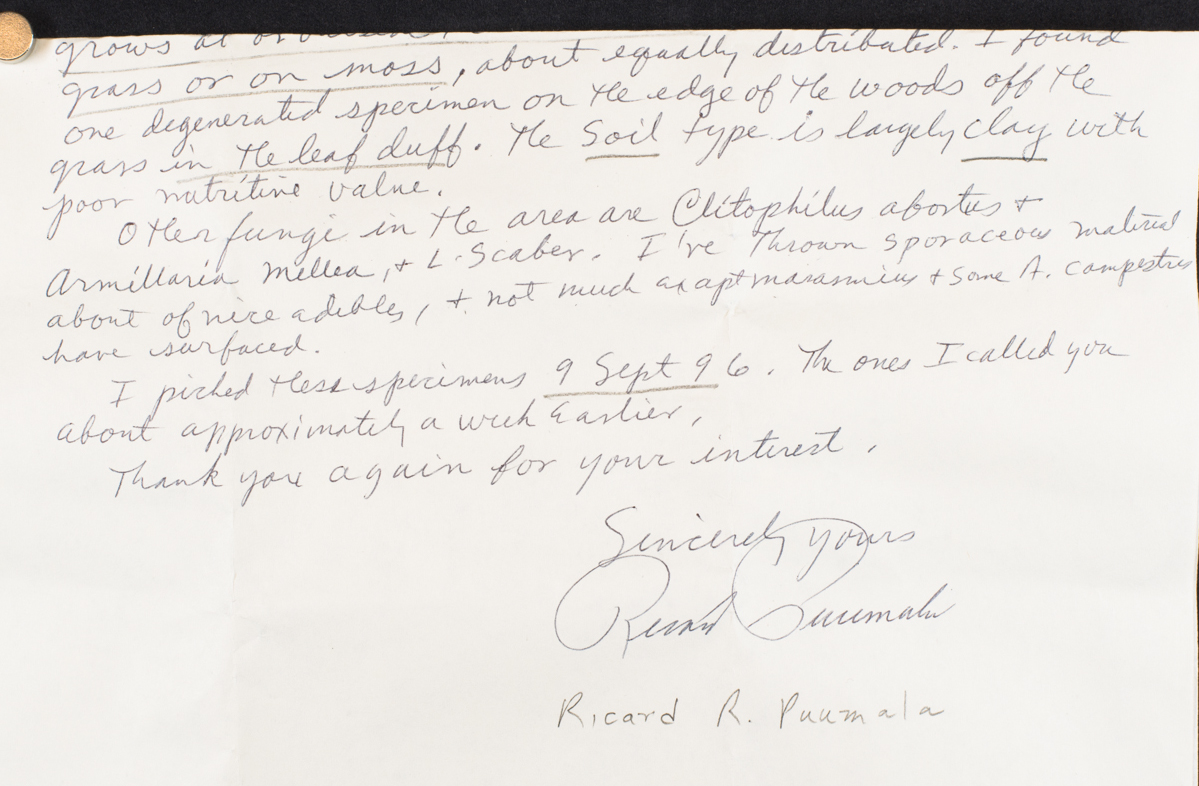 grows at or
grass or on moss, about equally distributed. I found
one degenerated specimen on the edge of the woods off the
grass in the leaf duff. The Soil type is largely clay with
poor nutritive value.
Other fungi in the area are Clitophilus abortus +
Armillaria Mellea, + L. Scaber. I've thrown sporaceous material
about of nice adibles, + not much except marasmius + some A. campestres
have surfaced.
I picked these specimens 9 Sept 96. The ones I called you
about approximately a week earlier.
Thank you again for your interest.
Sincerely yours
Ricard Puumala
Ricard R. Puumala